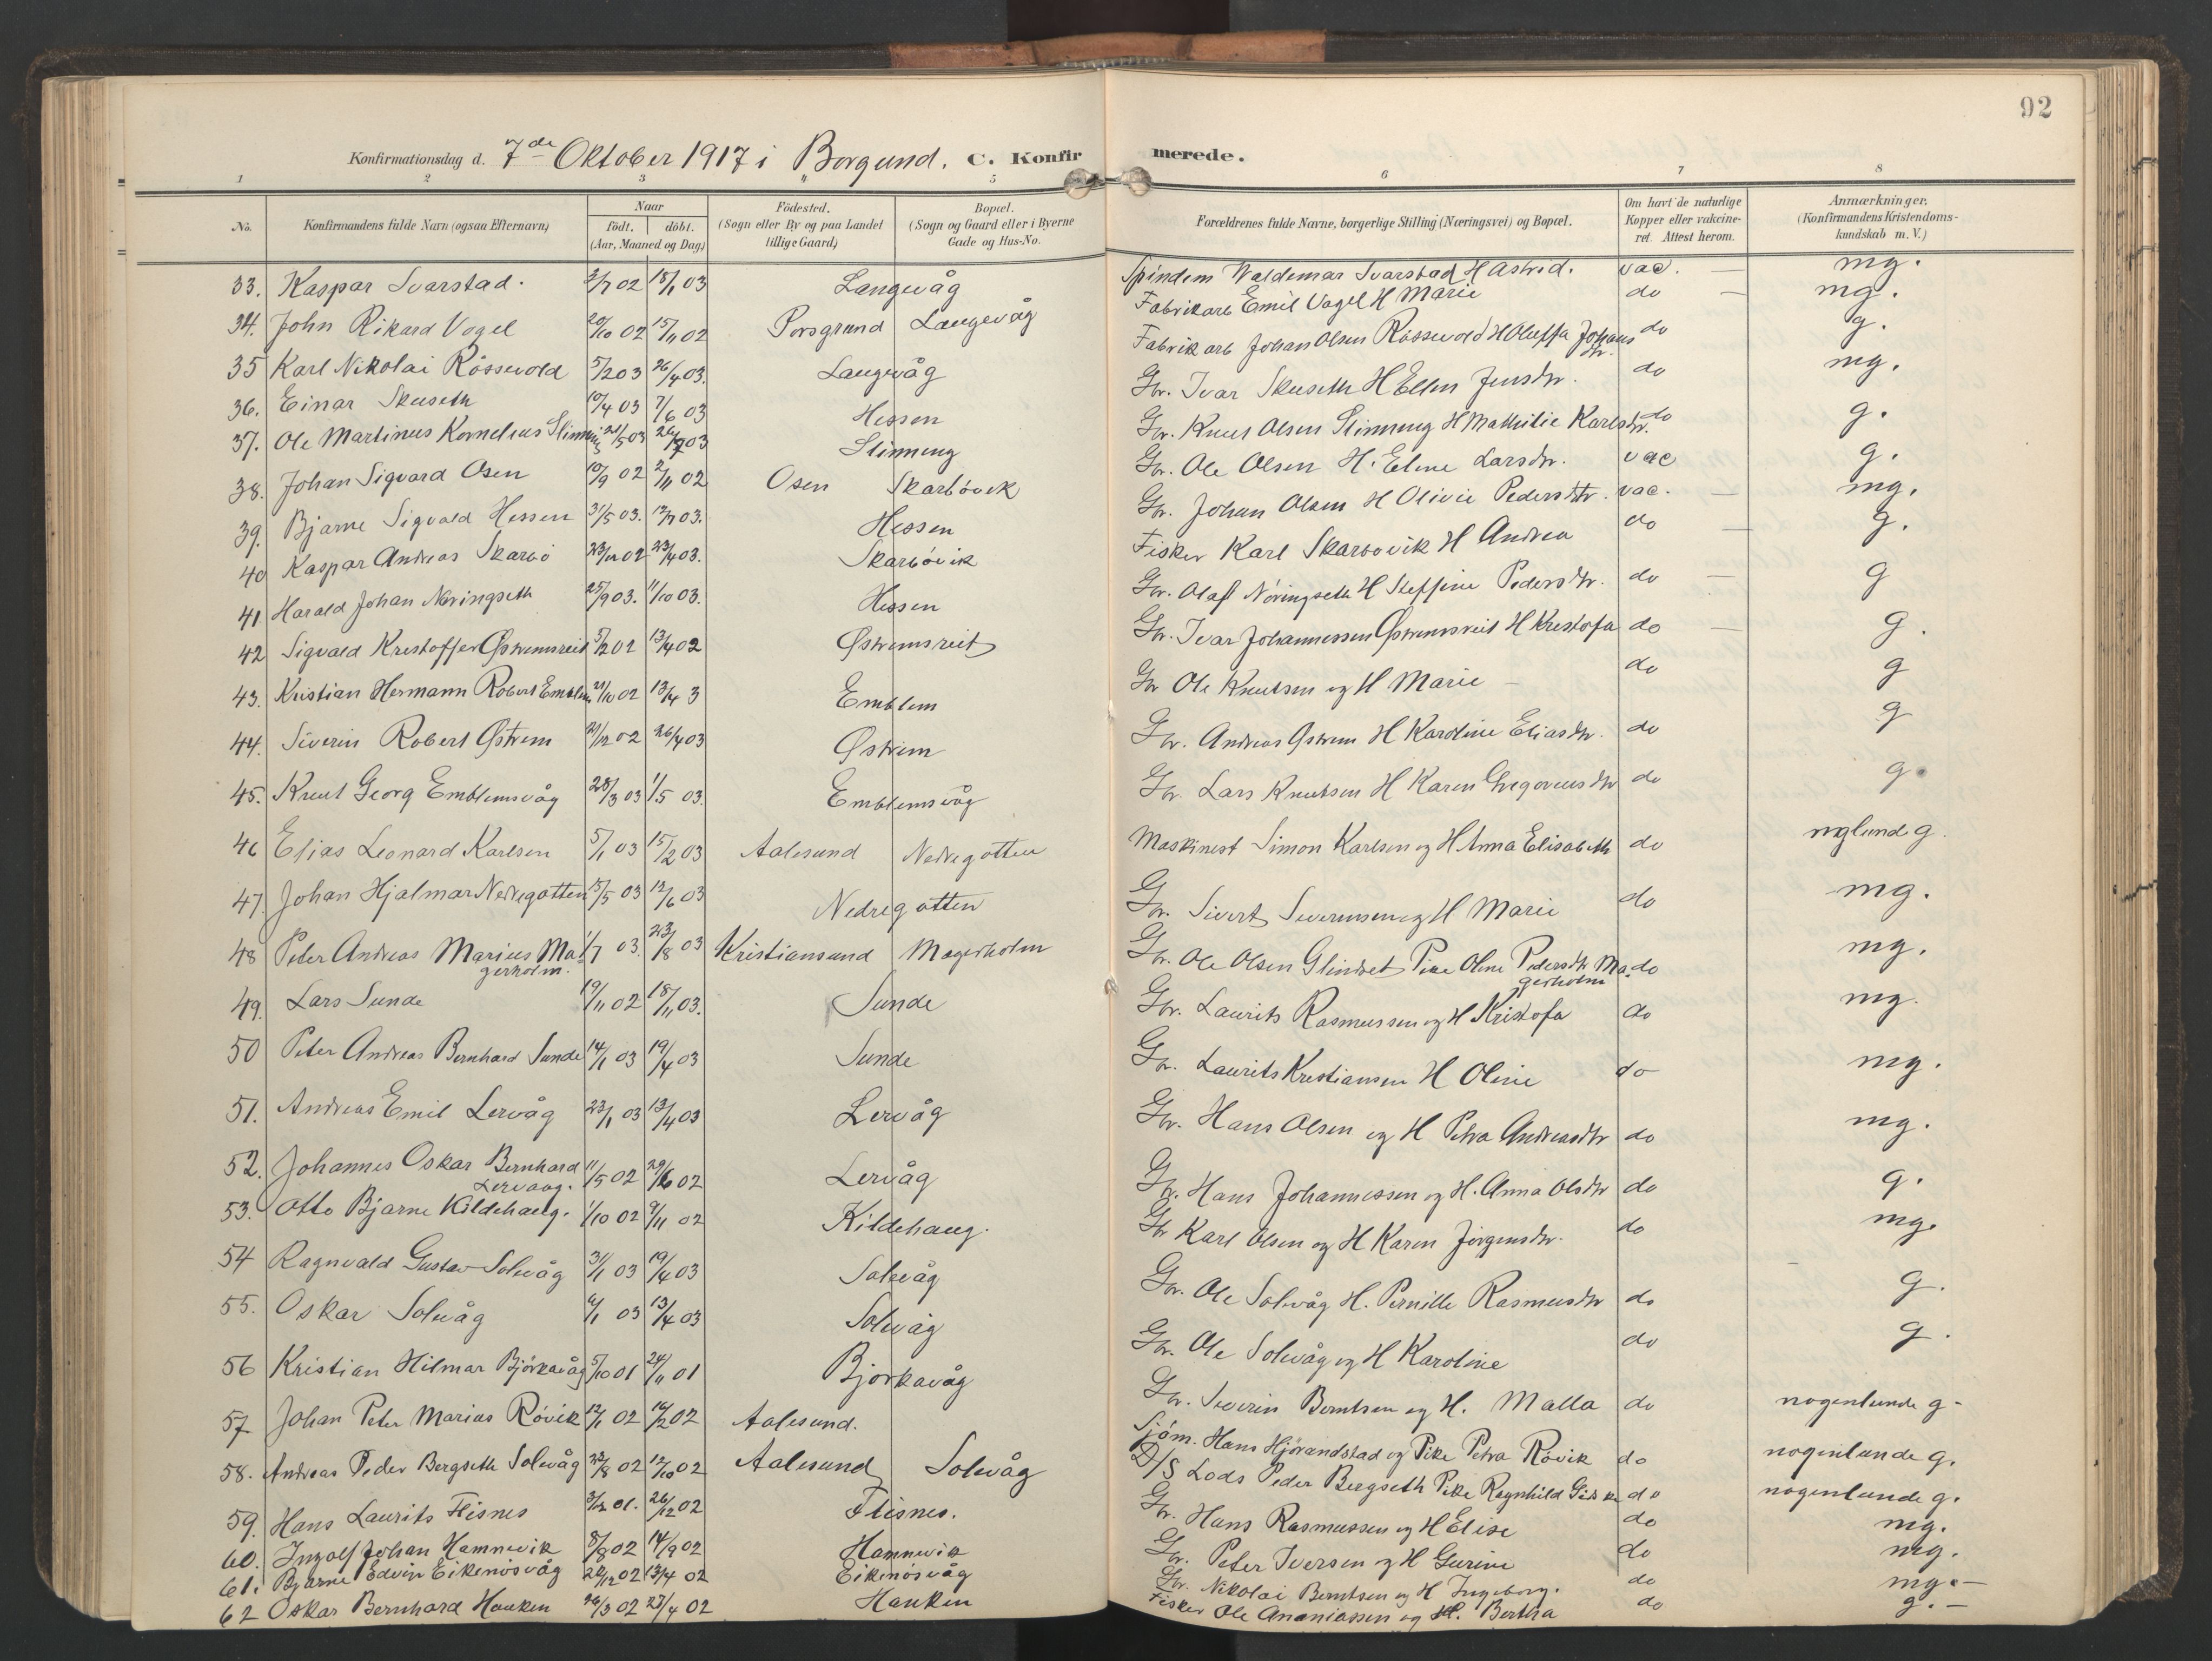 92
Konfirmationsdag d. 7de Oktober 1917 i Borgund. C. Konfirmerede.
1 2 3 4 5 6 7 8
No. Konfirmandens fulde Navn (ogsaa Efternavn) Naar födt. döbt. (Aar, Maaned og Dag) Födested. (Sogn eller By og paa Landet tillige Gaard) Bopæl. (Sogn og Gaard eller i Byerne Gade og Hus-No. Forældrenes fulde Navne, borgerlige Stilling (Næringsvei) og Bopæl. Om havt de naturlige Kopper eller vakcineret. Attest herom. Anmærkninger. (Konfirmandens Kristendomskundskab m. V.)
33. Kaspar Svarstad. 2/7 02 18/1 03 Langevåg Spindem Waldemar Svarstad H Astrid. vac. — mg.
34. John Rikard Vogel 20/10 02 15/11 02 Porsgrund Langevåg Fabrikarb Emil Vogel H Marie do — mg.
35 Karl Nikolai Rössevold 5/2 03 26/4 03. Langevåg Fabrik arb Johan Olsen Rössevold H Oluffa Johansdtr. do g.
36. Einar Skuseth 10/4 03 7/6 03 Hessen Gbr. Ivar Skuseth H Ellen Jensdtr. do mg.
37. Ole Martinus Kornelius Slinning 21/5 03 26/7 03 Slinning Gbr. Knut Olsen Slinning H Mathilie Karlsdtr. do g.
38. Johan Sigvard Osen 10/9 02 2/11 02 Osen Skarbövik Gbr. Ole Olsen H. Eline Larsdtr. vac g.
39. Bjarne Sigvald Hessen 31/5 03. 12/7 03. Hessen Gbr. Johan Olsen H Olivie Pedersdtr. vac. — mg.
40 Kaspar Andreas Skarbö 23/12 02 23/4 03. Skarbövik Fisker Karl Skarbövik H Andrea do — g.
41 Harald Johan Nöringseth 25/9 03. 11/10 03. Hessen Gbr. Olaf Nöringseth H Steffine Pedersdtr. do — g
42 Sigvald Kristoffer Østremsreit 5/2 02 13/4 02 Østremsreit Gbr. Ivar Johannessen Østremsreit H Kristofa do — g.
43. Kristian Hermann Robert Emblem 21/10 02 13/4 3 Emblem Gbr Ole Knutsen og H Marie — do g
44. Siverin Robert Østrem 21/12 02 26/4 03 Østrem Gbr. Andreas Østrem H Karoline Eliasdtr. do g
45. Knut Georg Emblemsvåg 28/3 03 1/5 03. Emblemsvåg Gbr. Lars Knutsen H Karen Gregoriusdtr do g.
46 Elias Leonard Karlsen 5/1 03 15/2 03 Aalesund Nedregotten Maskinest Simon Karlsen og H Anna Elisabeth do nglunde g.
47. Johan Hjalmar Nedregotten 15/5 03 12/6 03 Nedregotten Gbr. Sivert Severinsen og H Marie do mg.
48 Peter Andreas Marius Magerholm. 1/7 03. 23/8 03 Kristiansund Magerholm Gbr. Ole Olsen Glindset Pike Oline Pedersdtr Magerholm do mg.
49. Lars Sunde 19/11 02 18/11 03. Sunde Gbr. Laurits Rasmussen og H Kristofa do mg.
50 Peter Andreas Bernhard Sunde 14/1 03 19/4 03 Sunde Gbr. Laurits Kristiansen H Oline do mg.
51. Andreas Emil Lervåg 23/1 03 13/4 03 Lervåg Gbr. Hans Olsen og H Petra Andreasdtr do mg.
52. Johannes Oskar Bernhard Lervaag. 11/5 02 29/6 02 Lervåg Gbr. Hans Johannessen og H. Anna Olsdtr do g.
53. Otto Bjarne Kildehaug. 1/10 02 9/11 02 Kildehaug. Gbr Karl Olsen og H Karen Jörgensdtr. do mg.
54 Ragnvald Gustav Solevåg 31/1 03 19/4 03 Solevåg Gbr. Ole Solevåg H. Pernille Rasmusdtr do g.
55. Oskar Solevåg 6/1 03 13/4 03 Solevåg Gbr. Ole Solevåg og H Karoline do g.
56 Kristian Hilmar Björkavåg 5/10 01 24/11 01 Björkavåg Gbr. Severin Berntsen og H. Malla do nogenlunde g-
57. Johan Peter Marius Rövik 12/1 02 16/2 02 Aalesund. Sjöm. Hans Hjörandstad og Pike Petra Rövik do nogenlunde g.
58. Andreas Peder Bergseth Solevåg 23/8 02 12/10 02 Aalesund Solevåg D/S Lods Peder Bergseth Pike Ragnhild Giske do nogenlunde g.
59. Hans Laurits Flisnes 3/12 01. 26/12 02 Flisnes. Gbr. Hans Rasmussen og H Elise do mg.
60. Ingolf Johan Hamnevik 8/8 02 14/9 02 Hamnevik Gbr. Peter Iversen og H Gurine do mg.
61. Bjarne Edvin Eikenosvåg 22/12 02 13/4 02 Eikenosvåg Gbr. Nikolai Berntsen og H Ingeborg. do mg. —
62 Oskar Bernhard Hanken 26/3 02 27/4 02 Hanken Fisker Ole Ananiassen og H. Bertha do g. —